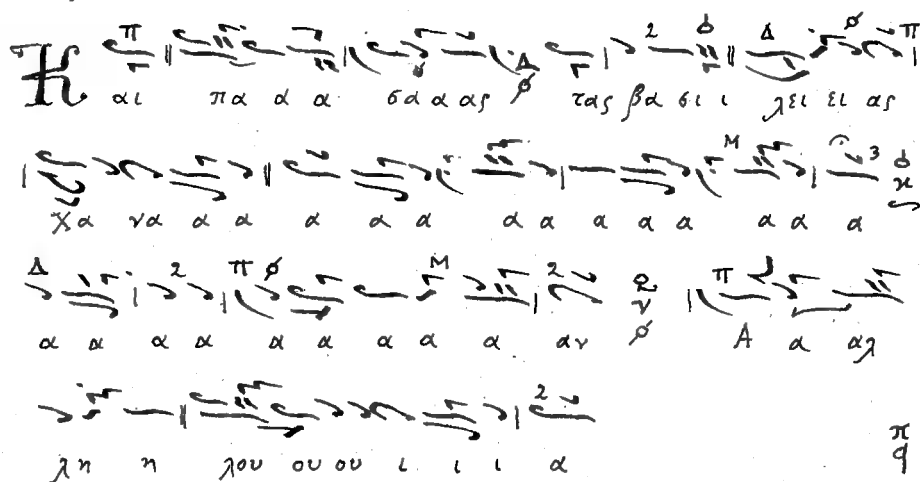 Κ αι πα α α σα α ας τας βα σι ι λει ει ας
χα να α α α α α α α α α α α α α
α α α α α α α α α αν Α α αλ
λη η λου ου ου ι ι ι α